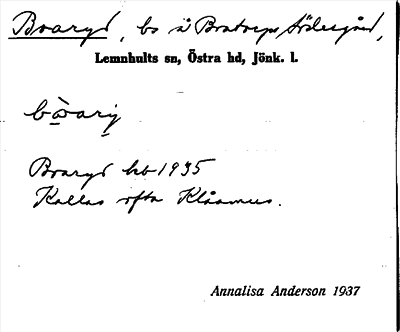 Boaryd, bs å Bratorps Södregård,
Lemnhults sn, Östra hd, Jönk. l.
Boaryd hb 1935
Kallas ofta Klåamus.
Annalisa Anderson 1937